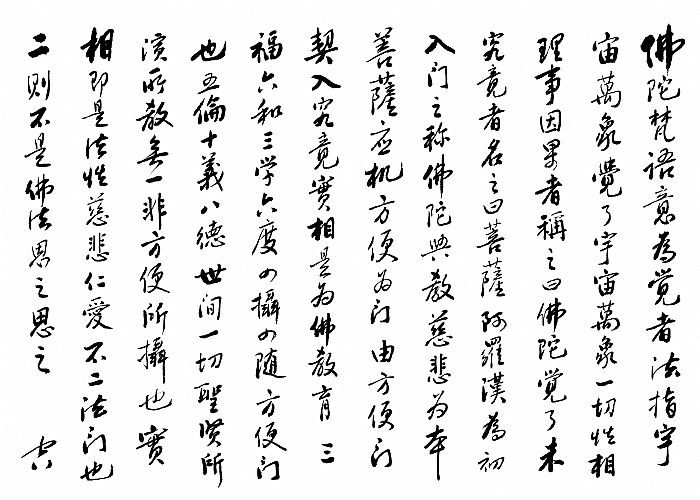 佛陀梵语意為觉者法指宇
宙萬象覺了宇宙萬象一切性相
理事因果者稱之曰佛陀覚了未
究竟者名之曰菩薩阿羅漢為初
入门之称佛陀興教慈悲为本
善薩应机方便为门由方便门
契入究竟實相是为佛教育三
福六和三学六度四攝四随方便门
也五倫十義八德世间一切聖贤所
演所教無一非方便所攝也實
相即是法性慈悲仁愛不二法门也
二则不是佛法思之思之